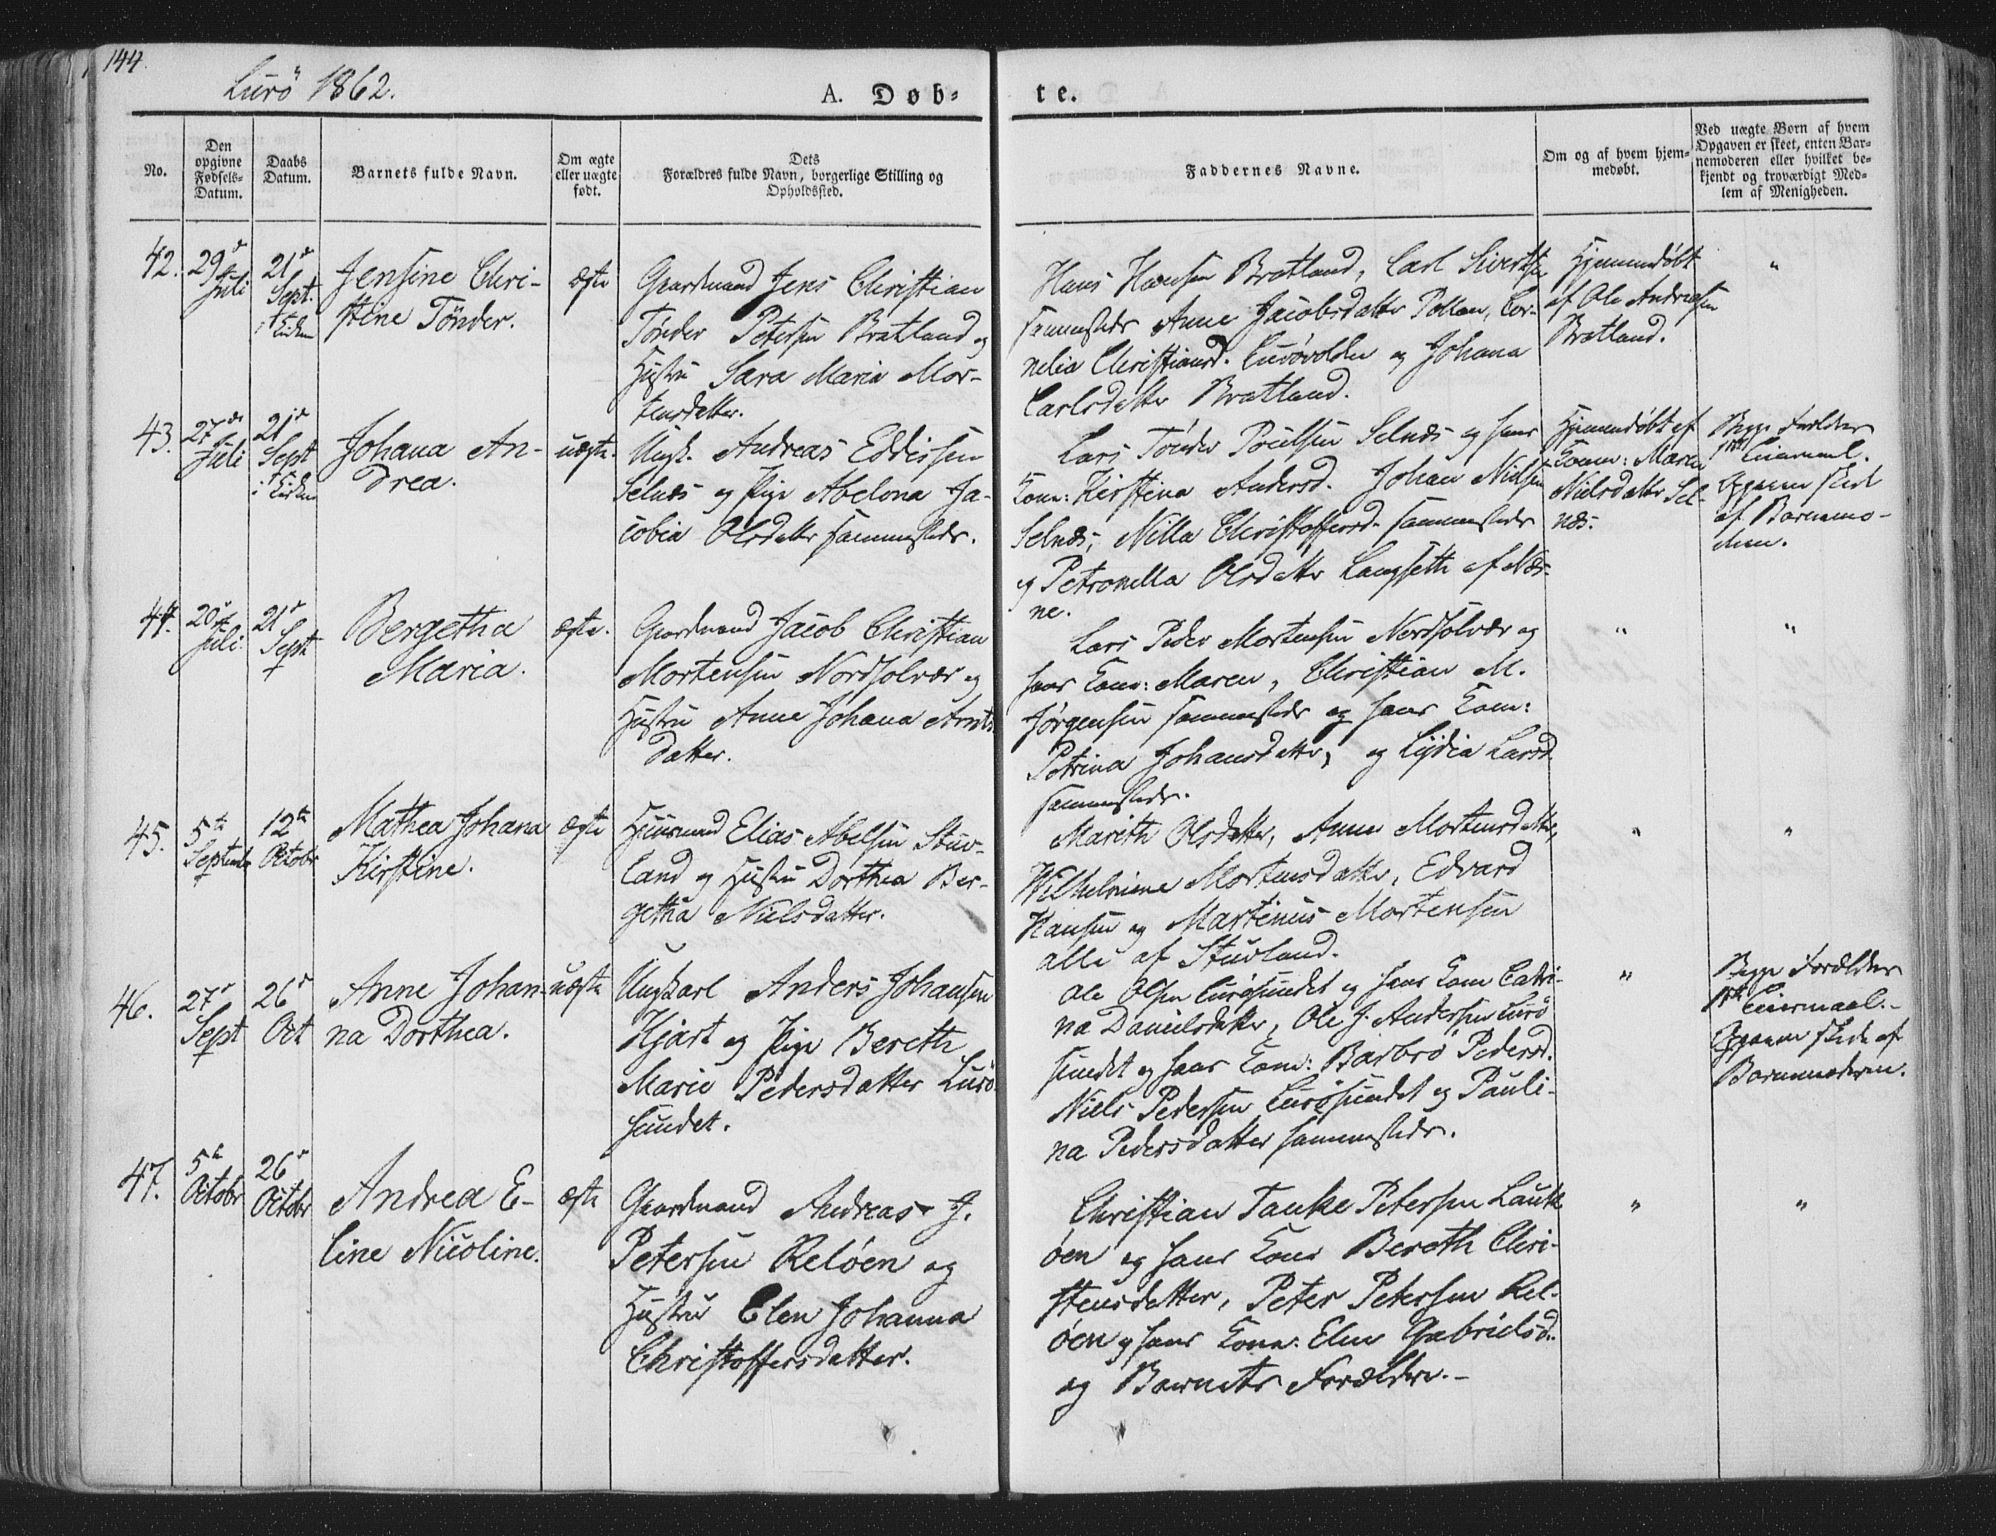 144.
Lurö 1862.
A. Døb-
te.
No.
Den
opgivne
Fødsels-
Datum.
Daabs
Datum.
Barnets fulde Navn.
Om ægte
eller uægte
født.
Dets
Forældres fulde Navn, borgerlige Stilling og
Opholdssted.
Faddernes Navne.
Om og af hvem hjem-
medøbt.
Ved uægte Børn af hvem
Opgaven er skeet, enten Bar-
nemoderen eller hvilket be-
kjendt og troværdigt Med-
lem af Menigheden.
42.
29de
Juli
21de
Sept.
i Kirken
Jensine Chri-
stine Tönder.
ægte
Gaardmand Jens Christian
Tönder Petersen Bratland og
Hustru Sara Maria Mor-
tensdatter.
Hans Hansen Bratland, Carl Sivertsen
sammesteds Anne Jacobsdatter Pollen, Cor-
nelia Christiansd. Lurövolden og Johana
Carlsdatter Bratland.
Hjemmedøbt
af Ole Andreassen
Bratland.
"
43.
27de
Juli
21de
Sept
i Kirken
Johana An-
drea.
uægte.
Ungk. Andreas Eddissen
Selnæs og Pige Abelona Ja-
cobia Olsdatter sammesteds.
Lars Tönder Poulsen Selnæs og hans
Kone: Kirstina Andersd. Johan Nielsen
Selnæs, Nilla Christoffersd. sammesteds
og Petronella Olsdatter Langseth af Næs-
ne.
Hjemmedøbt af
Konen: Maren
Nielsdatter Sel-
næs.
Begge Forældres
1ste Leiermaal.
Opgaven skeet
af Barnemo-
deren.
44.
20de
Juli.
21de
Sept
Bergetha
Maria.
ægte.
Gaardmand Jacob Christian
Mortensen Nordsolvær og
Hustru Anne Johana Arnts
datter.
Lars Peder Mortensen Nordsolvær og
hans Kone: Maren, Christian M.
Jørgensen sammesteds og hans Kone:
Petrina Johansdatter, og Lydia Larsd.
sammesteds.
"
"
45.
5te
Septembr
12te
Octobr
Mathea Johana
Kirstine.
ægte
Huusmand Elias Abelsen Stuv-
land og Hustru Dorthea Ber-
getha Nielsdatter.
Mareth Olsdatter, Anne Mortensdatter,
Wilhelmine Mortensdatter, Edvard
Hansen og Martinus Mortensen
alle af Stuvland.
"
"
46.
27de
Sept
26de
Oct
Anne Johan-
na Dorthea.
uægte
Ungkarl Anders Johansen
Hjart og Pige Bereth
Marie Pedersdatter Lurö-
sundet.
Ole Olsen Lurösundet og hans Kone Catri-
na Danielsdatter, Ole J. Andersen Lurö
sundet og hans Kone: Barbro Pedersd.
Niels Pedersen Lurösundet og Pauli-
na Pedersdatter sammesteds.
"
Begge Forældres
1ste Leiermaal.-
Opgaven skede af
Barnemoderen.
47.
5te
Octobr
26de
Octobr
Andrea E-
line Nicoline.
ægte
Gaardmand Andreas J.
Petersen Relöen og
Hustru Elen Johanna
Christoffersdatter.
Christian Tanke Petersen
öen og hans Kone Bereth Chri-
stensdatter, Peter Petersen Rel-
öen og hans Kone: Elen Gabrielsd.
og Barnets Forældre.-
"
"